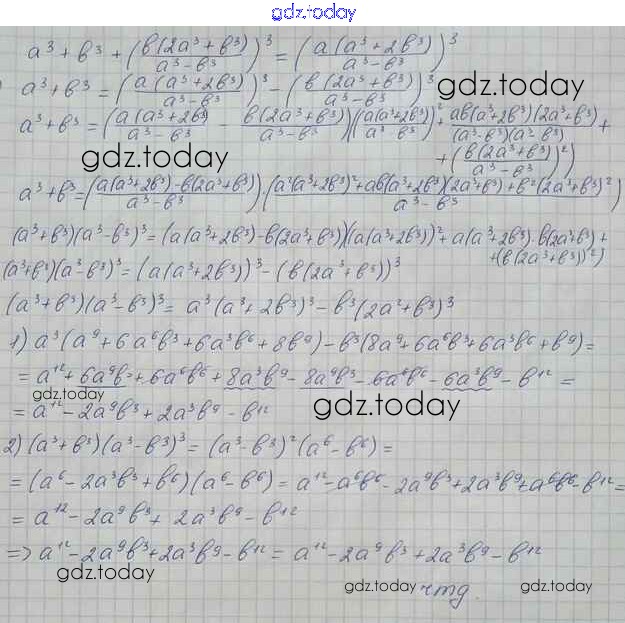 gdz.today
a³ + b³ + (b(2a³ + b³)/a³ − b³)³ = (a(a³ + 2b³)/a³ − b³)³
a³ + b³ = (a(a³ + 2b³)/a³ − b³)³ − (b(2a³ + b³)/a³ − b³)³
gdz.today
a³ + b³ = (a(a³ + 2b³)/a³ − b³ − b(2a³ + b³)/a³ − b³)((a(a³ + 2b³)/a³ − b³)² + ab(a³ + 2b³)(2a³ + b³)/(a³ − b³)(a³ − b³) +
+ (b(2a³ + b³)/a³ − b³)²)
gdz.today
a³ + b³ = (a(a³ + 2b³) − b(2a³ + b³)/a³ − b³) · (a²(a³ + 2b³)² + ab(a³ + 2b³)(2a³ + b³) + b²(2a³ + b³)²/a³ − b³)
(a³ + b³)(a³ − b³)³ = (a(a³ + 2b³) − b(2a³ + b³))((a(a³ + 2b³))² + a(a³ + 2b³) · b(2a³ + b³) +
+ (b(2a³ + b³))²)
(a³ + b³)(a³ − b³)³ = (a(a³ + 2b³))³ − (b(2a³ + b³))³
(a³ + b³)(a³ − b³)³ = a³(a³ + 2b³)³ − b³(2a² + b³)³
1) a³(a⁹ + 6a⁶b³ + 6a³b⁶ + 8b⁹) − b³(8a⁹ + 6a⁶b³ + 6a³b⁶ + b⁹) =
= a¹² + 6a⁹b³ + 6a⁶b⁶ + 8a³b⁹ − 8a⁹b³ − 6a⁶b⁶ − 6a³b⁹ − b¹² =
gdz.today
= a¹² − 2a⁹b³ + 2a³b⁹ − b¹²
gdz.today
2) (a³ + b³)(a³ − b³)³ = (a³ − b³)²(a⁶ − b⁶) =
= (a⁶ − 2a³b³ + b⁶)(a⁶ − b⁶) = a¹² − a⁶b⁶ − 2a⁹b³ + 2a³b⁹ + a⁶b⁶ − b¹² =
= a¹² − 2a⁹b³ + 2a³b⁹ − b¹²
=> a¹² − 2a⁹b³ + 2a³b⁹ − b¹² = a¹² − 2a⁹b³ + 2a³b⁹ − b¹²
gdz.today
gdz.today
чтд.
gdz.today